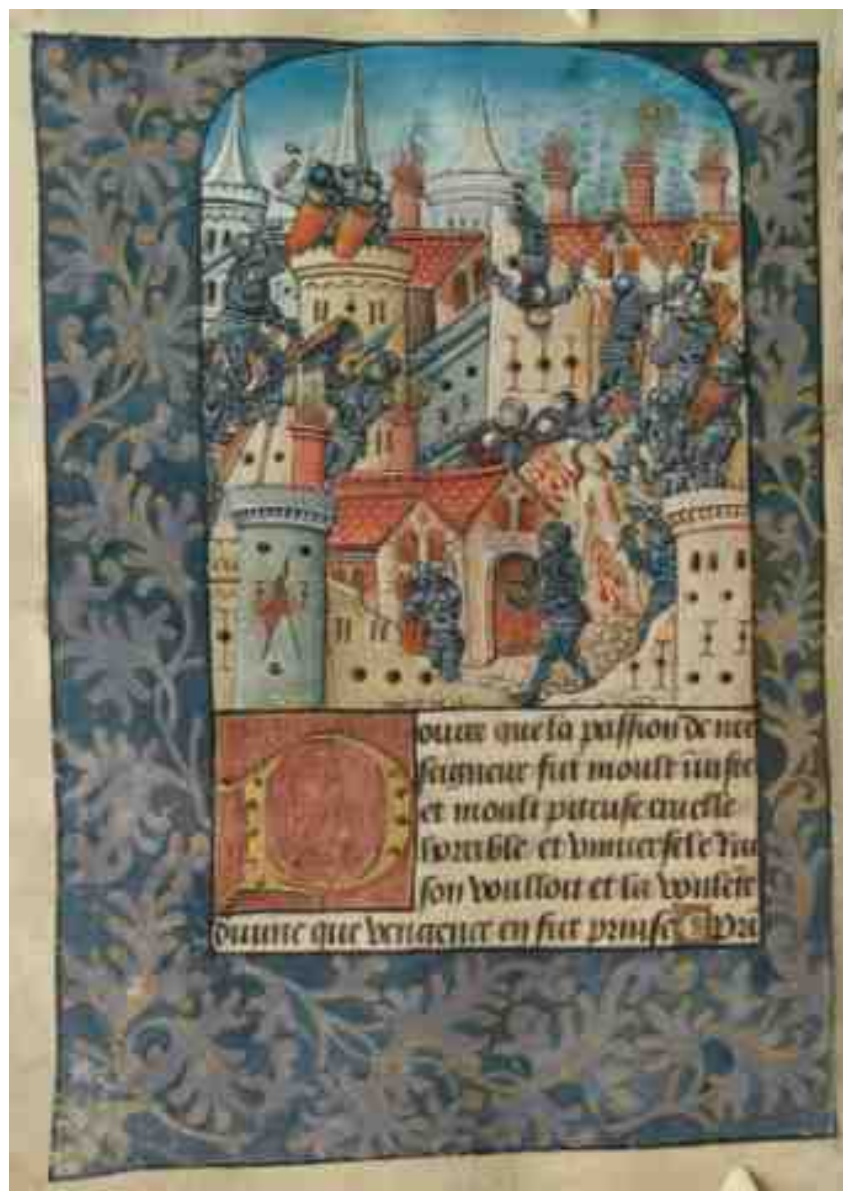 Pource que la passion de nr̄e
seigneur fut moult iniuste
et moult piteuse cruelle
horrible et vniuersele Rai
son voulloit et la voulente
diuine que vengence en fut prinse Pri